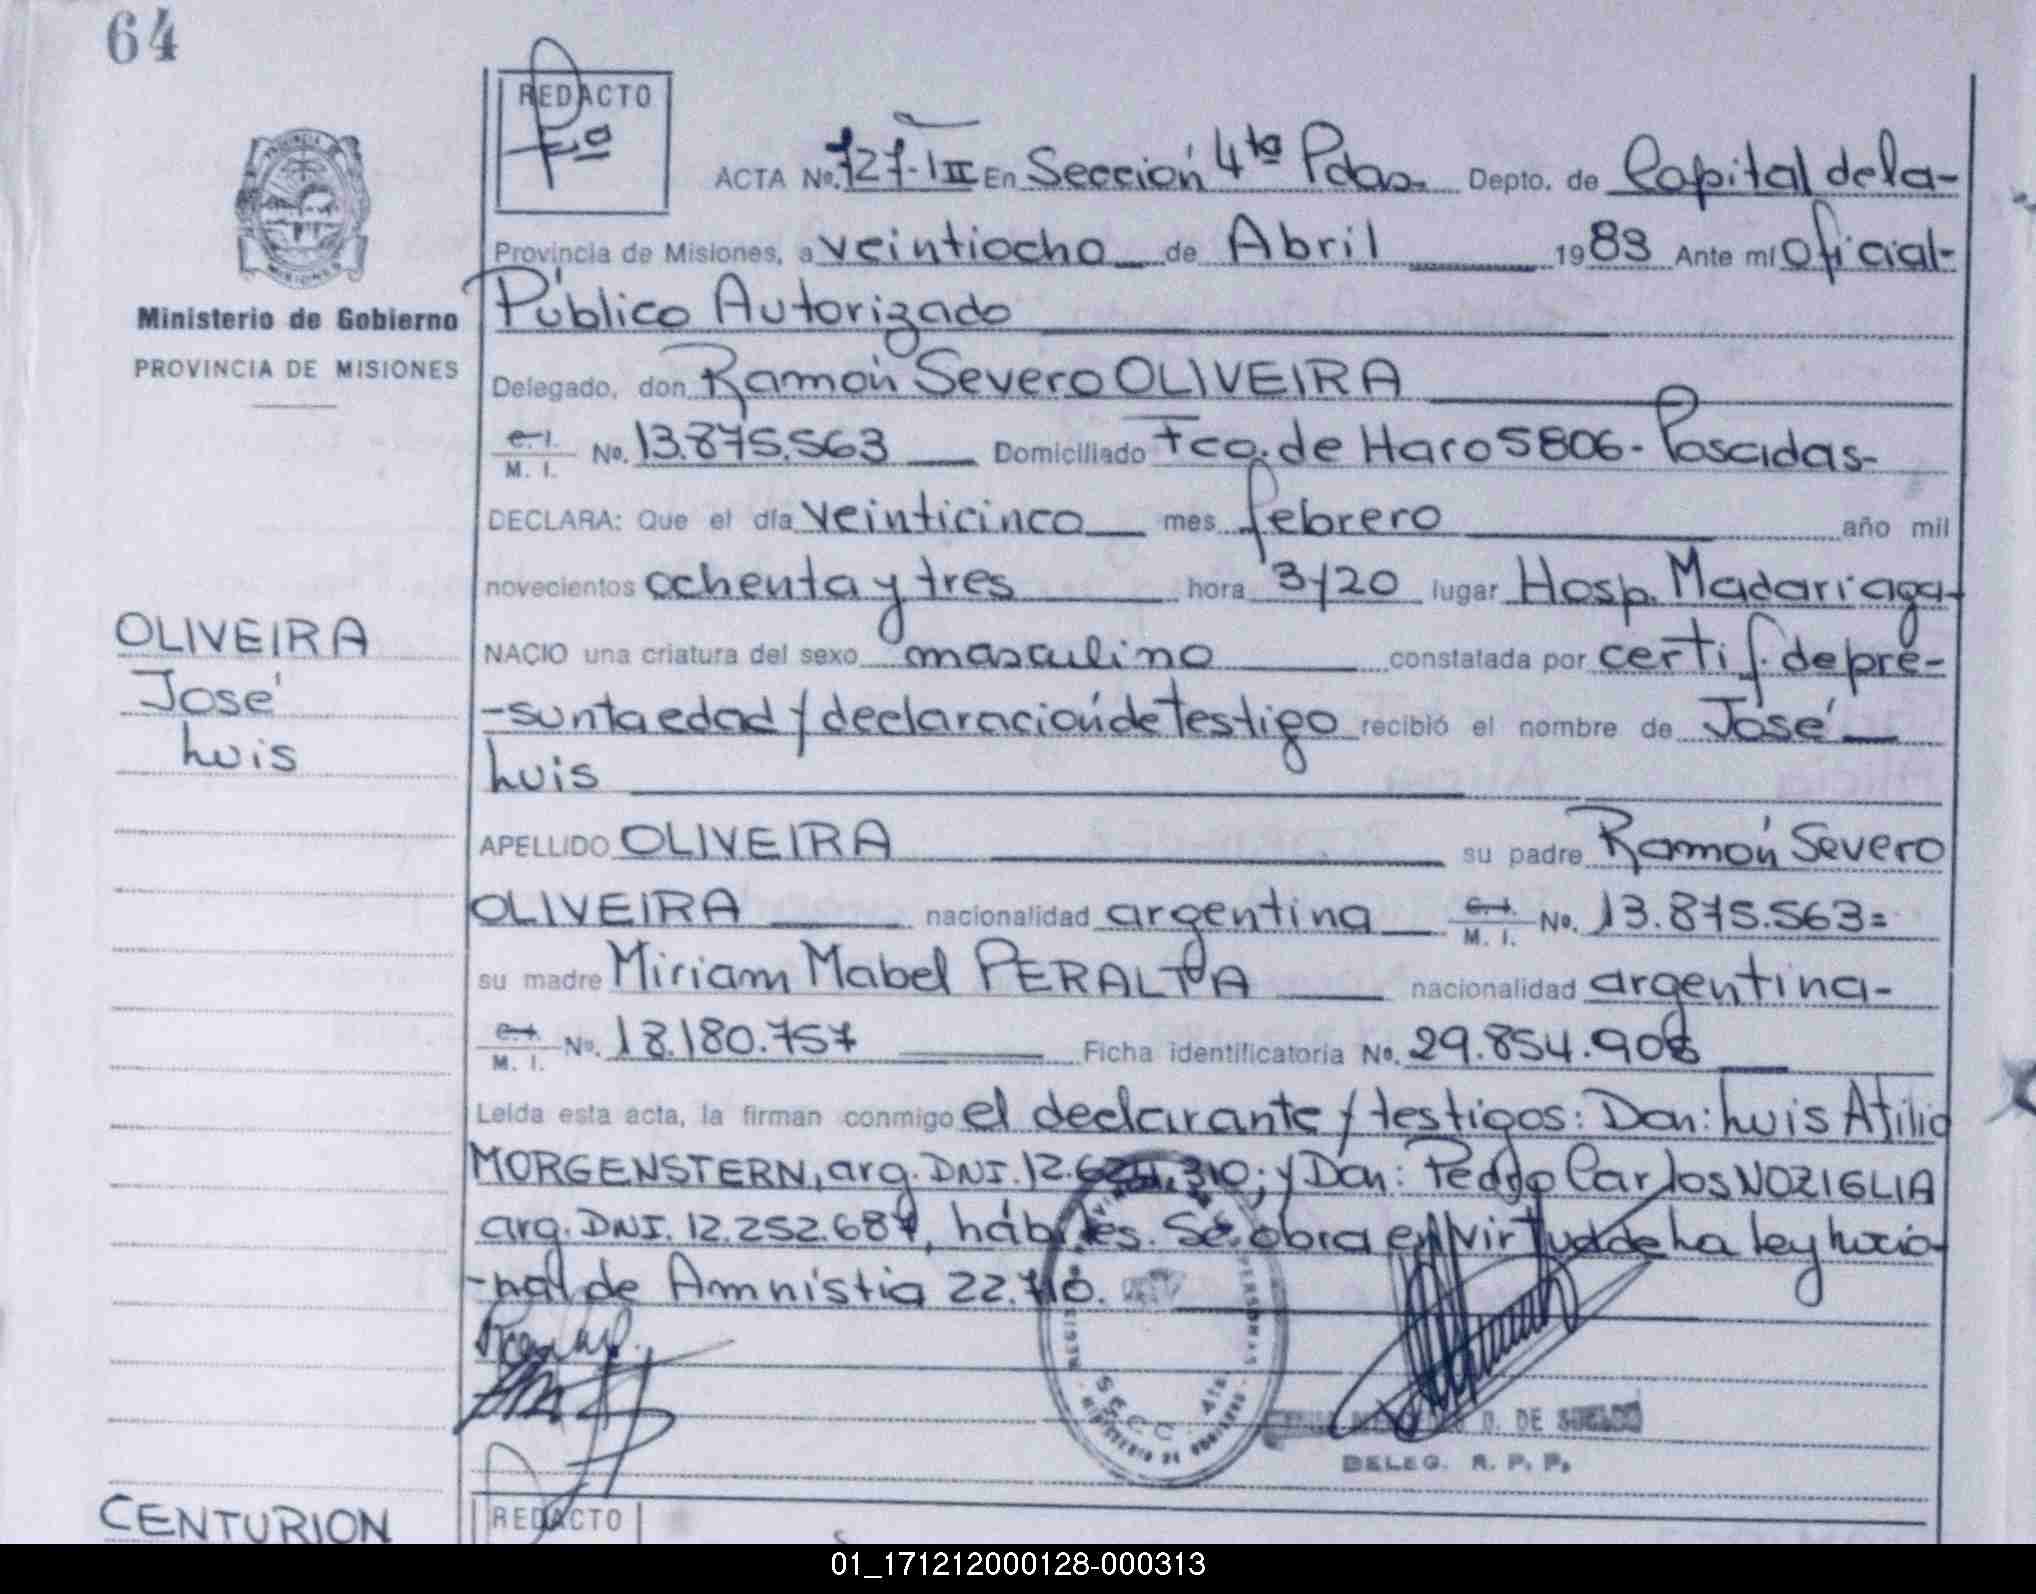 64
REDACTO
Fº
ACTA Nº. 727-III En Sección 4ta Pdas. Depto. de Capital de la-
Provincia de Misiones, a veintiocho de Abril 1983 Ante mí oficial-
Público Autorizado
PROVINCIA
MISIONES
Ministerio de Gobierno
PROVINCIA DE MISIONES
Delegado, don Ramón Severo OLIVEIRA
C. I.
M. I. Nº. 13.875.563 Domiciliado Fco. de Haro 5806- Poscidas-
DECLARA: Que el día veinticinco mes febrero año mil
novecientos ochenta y tres hora 3y20 lugar Hosp. Madariaga-
OLIVEIRA
José
Luis
NACIO una criatura del sexo masculino constatada por certif. de pre-
-sunta edad y declaración de testigo recibió el nombre de José
Luis
APELLIDO OLIVEIRA su padre Ramón Severo
OLIVEIRA nacionalidad argentina C. I. M. I. Nº. 13.875.563=
su madre Miriam Mabel PERALTA nacionalidad argentina-
C. I. M. I. Nº. 18.180.757 Ficha identificatoria Nº. 29.854.908
Leída esta acta, la firman conmigo el declarante y testigos: Don: Luis Atilio
MORGENSTERN, arg. DNI. 12. 310; y Don: Pedro Carlos NOZIGLIA
arg. DNI. 12.252.687, hábiles. Se obra en virtud de La Ley Nacio-
-nal de Amnistia 22.710.
SECC. 4ta
D. DE SUELDO
DELEG. R. P. P.
CENTURION
REDACTO
01_171212000128-000313